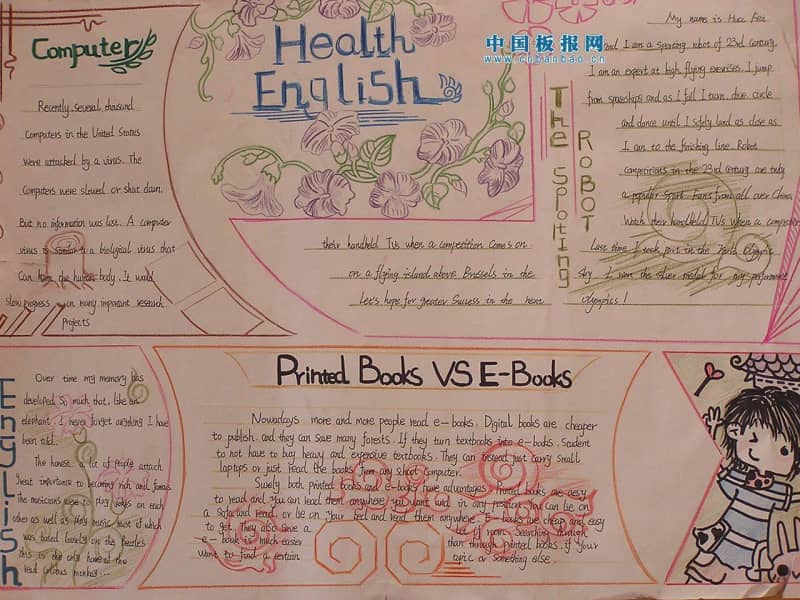 Computer
Recently, several thousand
Computers in the United States
were attacked by a virus. The
Computers were slowed or shut down.
But no information was lost. A computer
virus is similar to a biological virus that
Can the human body. It would
slow progress in many important research
Projects
Health
English
中国板报网
www.cnbanbao.cn
their handheld TVs when a competition comes on
on a flying island above Brussels in the
Let's hope for greater Success in the next
The Spolting
ROBOT
My name is Hua Fei
2nd, I am a sporting robot of 23rd century.
I am an expert at high flying exercises. I jump
from spaceships and as I fall I turn, dive, circle
and dance until I safely land as close as
I can to the finishing line. Robot
competitions in the 23rd century are truly
a popular Sport. Fans from all over China
Watch their handheld TVs when a competition
Last time I took part in the Olympic
sky. I won the silver medal for my performance
Olympics!
English
Over time my memory has
developed so much that, like an
elephant, I never forget anything I have
been told.
The honest, a lot of people attach
great importance to becoming rich and famous.
The musicians were to play jokes on each
other as well as play music, most of which
was based loosely on the Beatles
this is the only
Printed Books VS E-Books
Nowadays more and more people read e-books. Digital books are cheaper
to publish. and they can save many forests. If they turn textbooks into e-books. Student
to not have to buy heavy and expensive textbooks. They can instead just carry small
laptops or just read the books from any school computer.
Surely both printed books and e-books have advantages. Printed books are easy
to read and You can lead them anywhere you want land in any position. You can lie on
a Sofa and read, or lie on Your bed and lend them anywhere. E-books are cheap and easy
to get. They also save a
lot of room. Searching through
e-book is much easier
than through printed books. if your
want to find a certain
topic or something else.